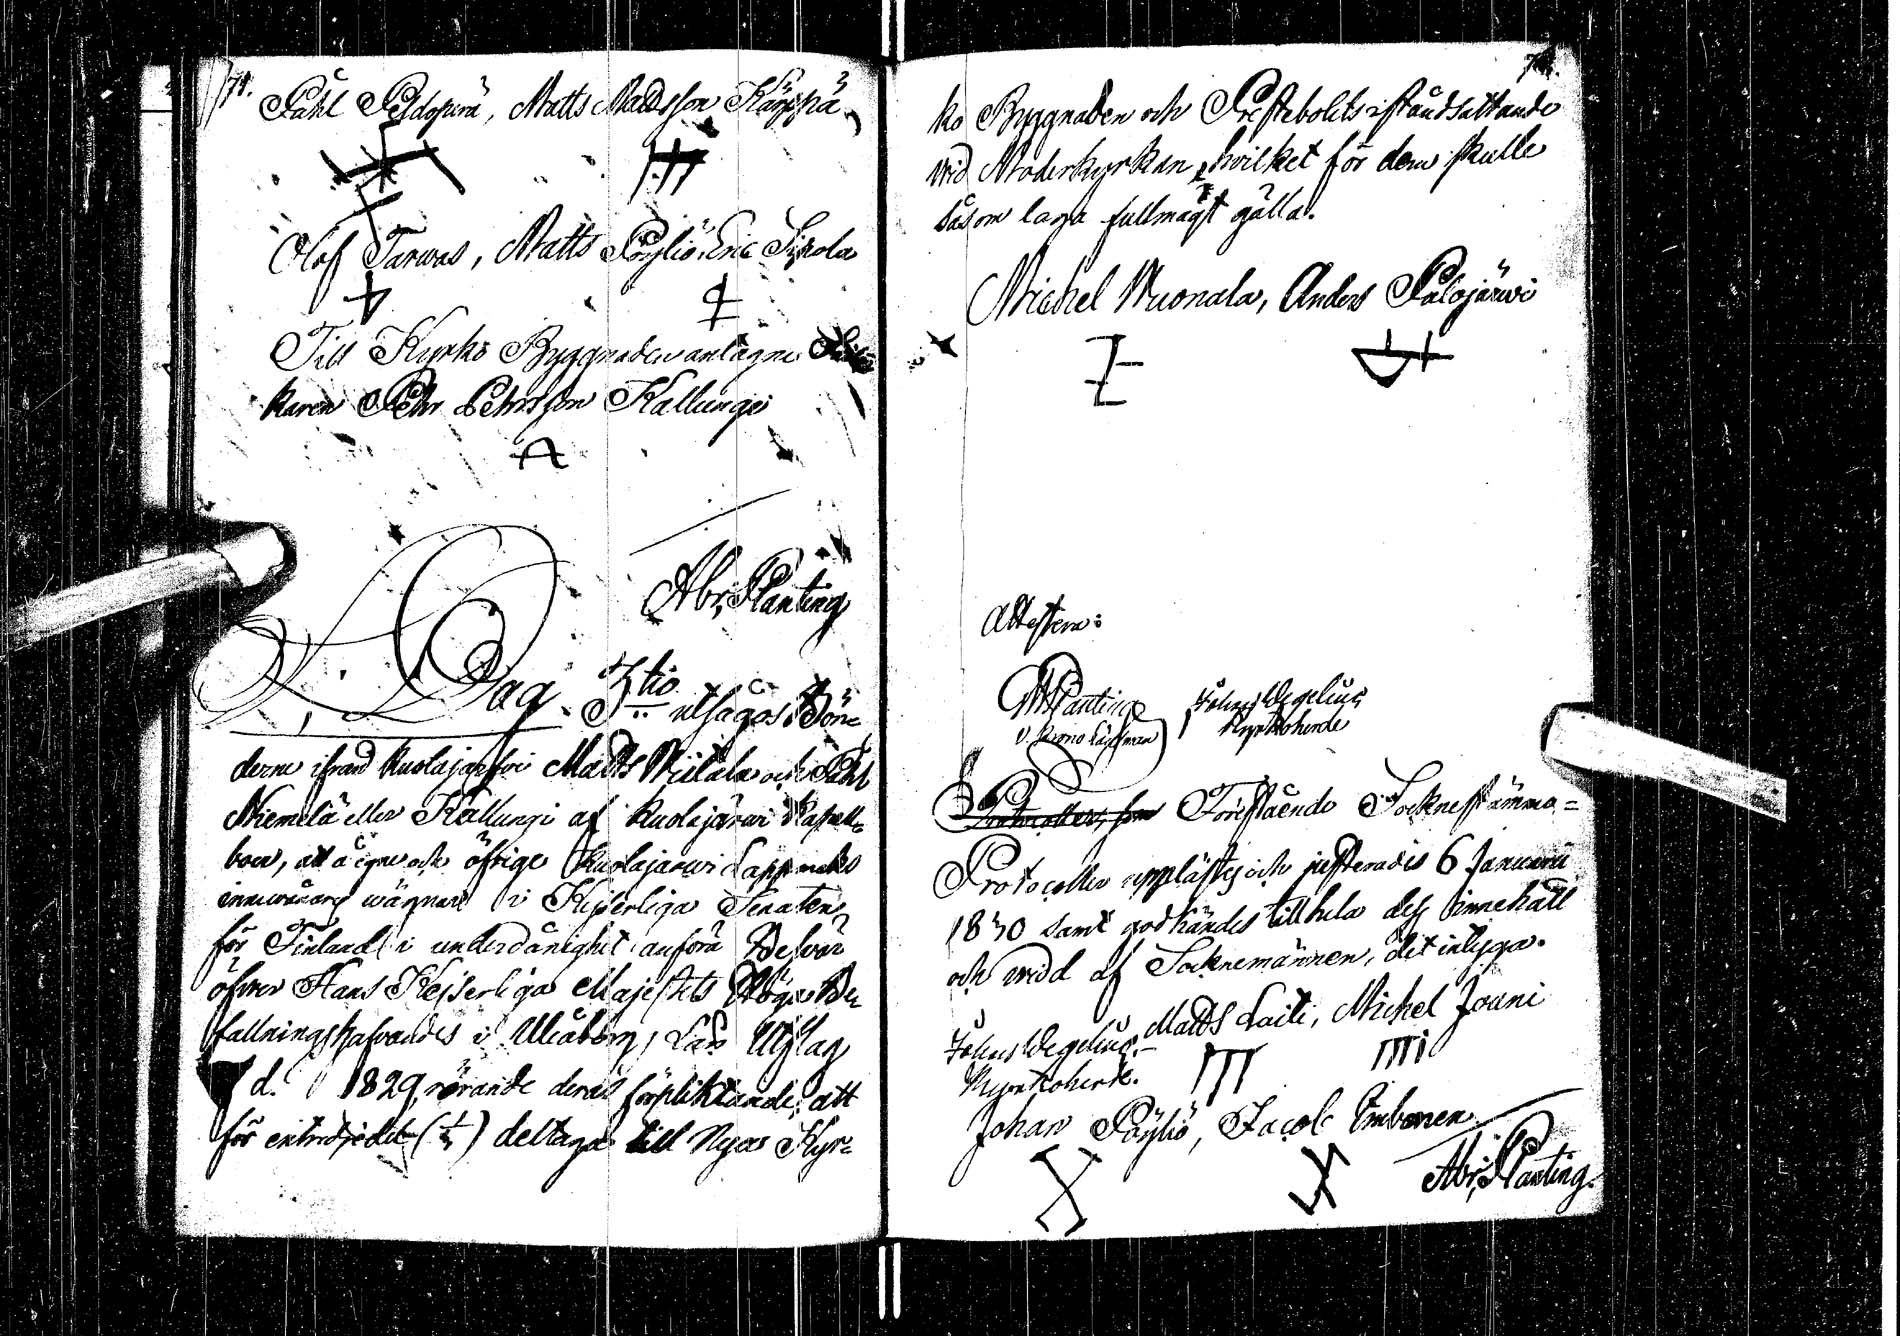 71.
Påhl Peldoperä, Matts Mattsson Kärppä
Olof Tarwas, Matts Pöyliö, Eric Sipola
Till Kyrko Byggnaden antagne
karen Pehr Pehrsson Kallungi
Abr. Planting
Dag.
3tio utsågos Bön-
derne ifrån Kuolajärfvi Matts Niilala och Påhl
Niemelä eller Kallungi af Kuolajärwi Kapell-
boer, att å egne och öfrige Kuolajärwi Lappmarks
innevånares wägnar i Kejserliga Senaten
för Finland i underdånighet anföra Beswär
öfwer Hans Kejserliga Majestets Höga Be-
fallningshafvandes i Uleåborgs Län Utslag
d. 1829, rörande deras förpliktande, att
för en tredjedel (1/3) deltaga till Nya Kyr-
ko Byggnaden och Prestebolets iståndsättande
wid Moderkyrkan, hvilket för dem skulle
såsom laga fullmagt gälla.
Michel Wuonala, Anders Palojärwi
Attestera:
Planting
v. Krono Länsman
Johns Wegelius
Kyrkoherde
Protocollet, som Förestående Sockenstämmo=
Protocoller upplästes och justerades 6 Januarii
1830 samt godkändes till hela dess innehåll
och med af Socknemännen, det intyga.
Johns Wegelius. Matts Laiti, Michel Jouni
Kyrkoherde.
Johan Pöyliö, Jacob Imbonen
Abr. Planting.